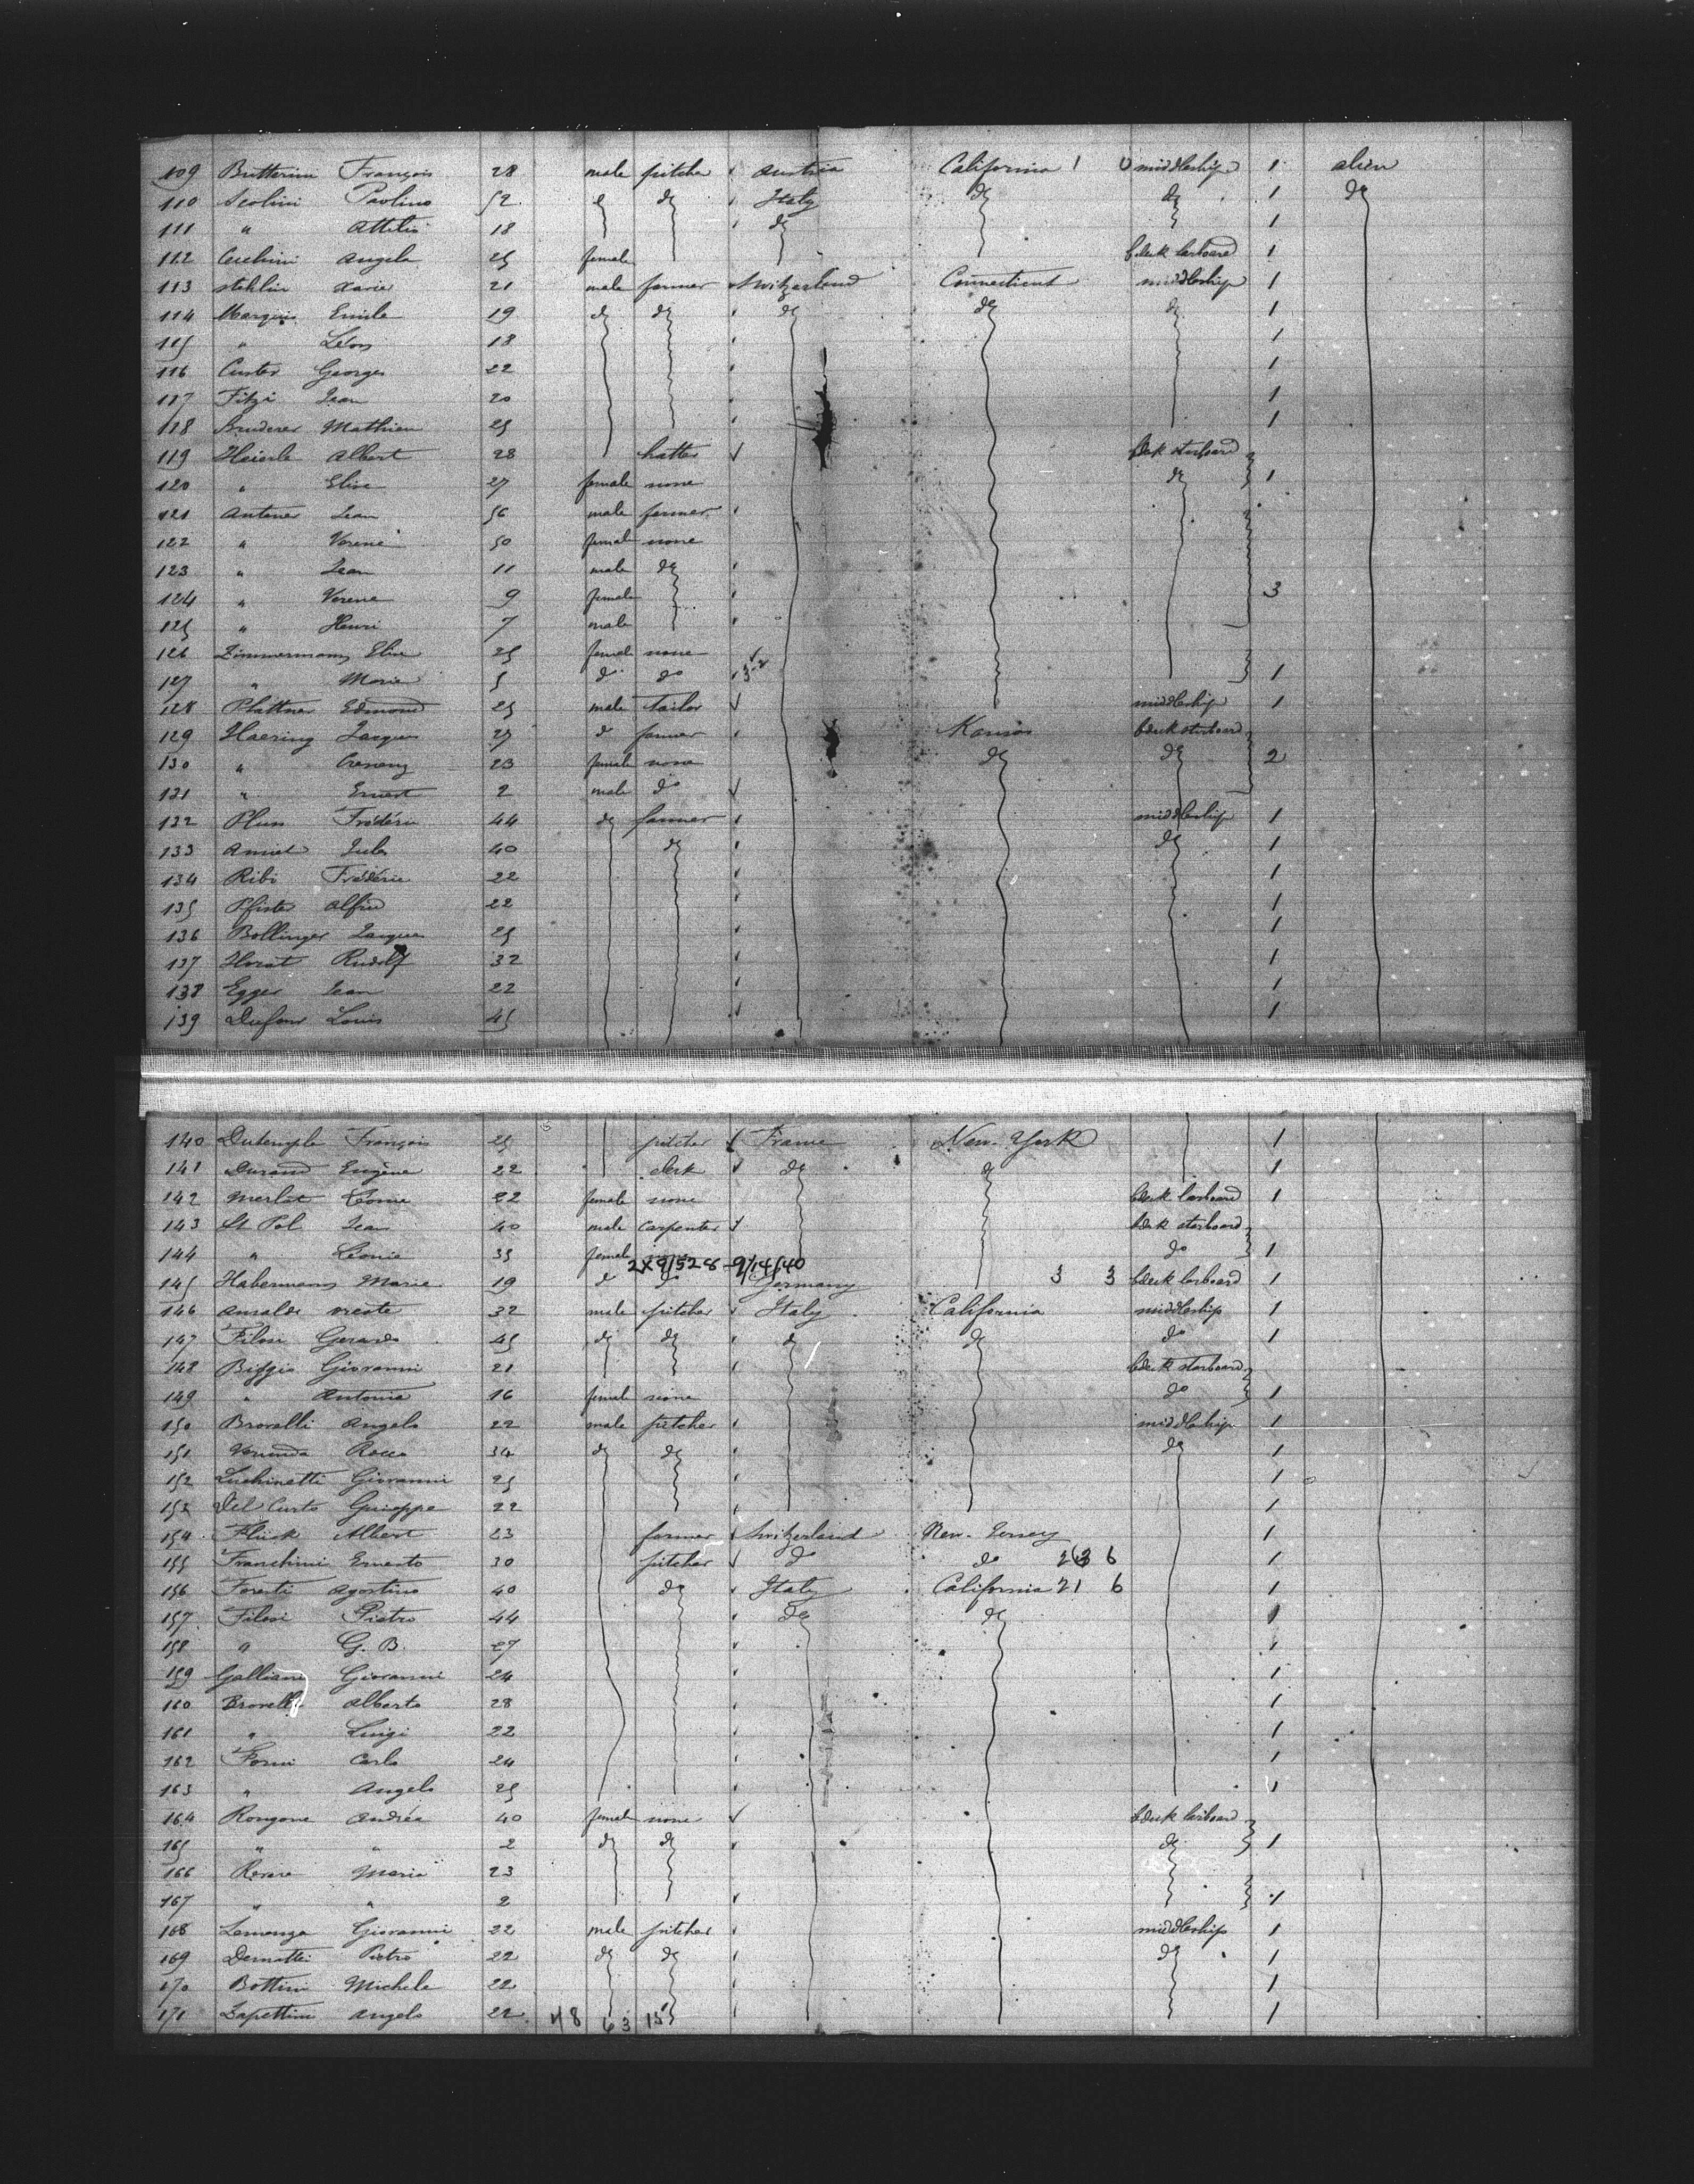 109 Butterini François 28 male pitcher Austria California 1 0 middleship 1 alien
110 Scolini Paolino 52 d Italy do do 1 do
111 " Attilio 18 do 1
112 Cecchini Angela 25 female bdeck larboard 1
113 Stehlin Xavier 21 male farmer Switzerland Connecticut middleship 1
114 Marquis Emile 19 do do do do do 1
115 " Léon 18 1
116 Custer Georges 22 1
117 Fitzi Jean 20 1
118 Bruderer Mathieu 25 1
119 Heierle Albert 28 hatter bdeck starboard
120 " Elise 27 female none do 1
121 Antener Jean 56 male farmer
122 " Verene 50 female none
123 " Jean 11 male do
124 " Verene 9 female 3
125 " Henri 7 male
126 Zimmermann Elise 25 female none
127 " Marie 5 do do 1
128 Plattner Edmond 25 male tailor middleship 1
129 Haering Jacques 27 d farmer Kansas bdeck starboard
130 " 23 female none do do 2
131 " Ernest 2 male do
132 Pluss Frédéric 44 do farmer middleship 1
133 Amiet Jules 40 do do 1
134 Ribi Frédéric 22 1
135 Pfister Alfred 22 1
136 Bollinger Jacques 25 1
137 Horat Rudolf 32 1
138 Egger Jean 22 1
139 Dufour Louis 45 1
140 Dutemple François 25 pitcher France New-York 1
141 Durand Eugène 22 clerk do do 1
142 Merlat 22 female none bdeck larboard 1
143 St Pol Jean 40 male carpenter bdeck starboard
144 " Léonie 35 female do 1
2X9/528-9/14/40
145 Habermann Marie 19 d do Germany 3 3 bdeck larboard 1
146 Ansaldi Oreste 32 male pitcher Italy California middleship 1
147 Filosi Gerardo 45 do do do do do 1
148 Biggio Giovanni 21 bdeck starboard
149 " Antonia 16 female none do 1
150 Brovelli Angelo 22 male pitcher middleship 1
151 Rocco 34 do do do 1
152 Luchinetti Giovanni 25 1
153 Del Curto Guiseppe 22 1
154 Flück Albert 23 farmer Switzerland New-Jersey 1
155 Franchini Ernesto 30 pitcher d do 6 1
156 Foresti Agostino 40 do Italy California 21 6 1
157 Filosi Pietro 44 do do 1
158 " G. B. 27 1
159 Galliani Giovanni 24 1
160 Brovelli Alberto 28 1
161 " Luigi 22 1
162 Forni Carlo 24 1
163 " Angelo 25 1
164 Rongone Andréa 40 female none bdeck larboard
165 " " 2 do do do 1
166 Revere Maria 23
167 " " 2 1
168 Lamonga Giovanni 22 male pitcher middleship 1
169 Dernatti Pietro 22 do do do 1
170 Bottini Michele 22 1
171 Zapettini Angelo 22 48 63 15 1